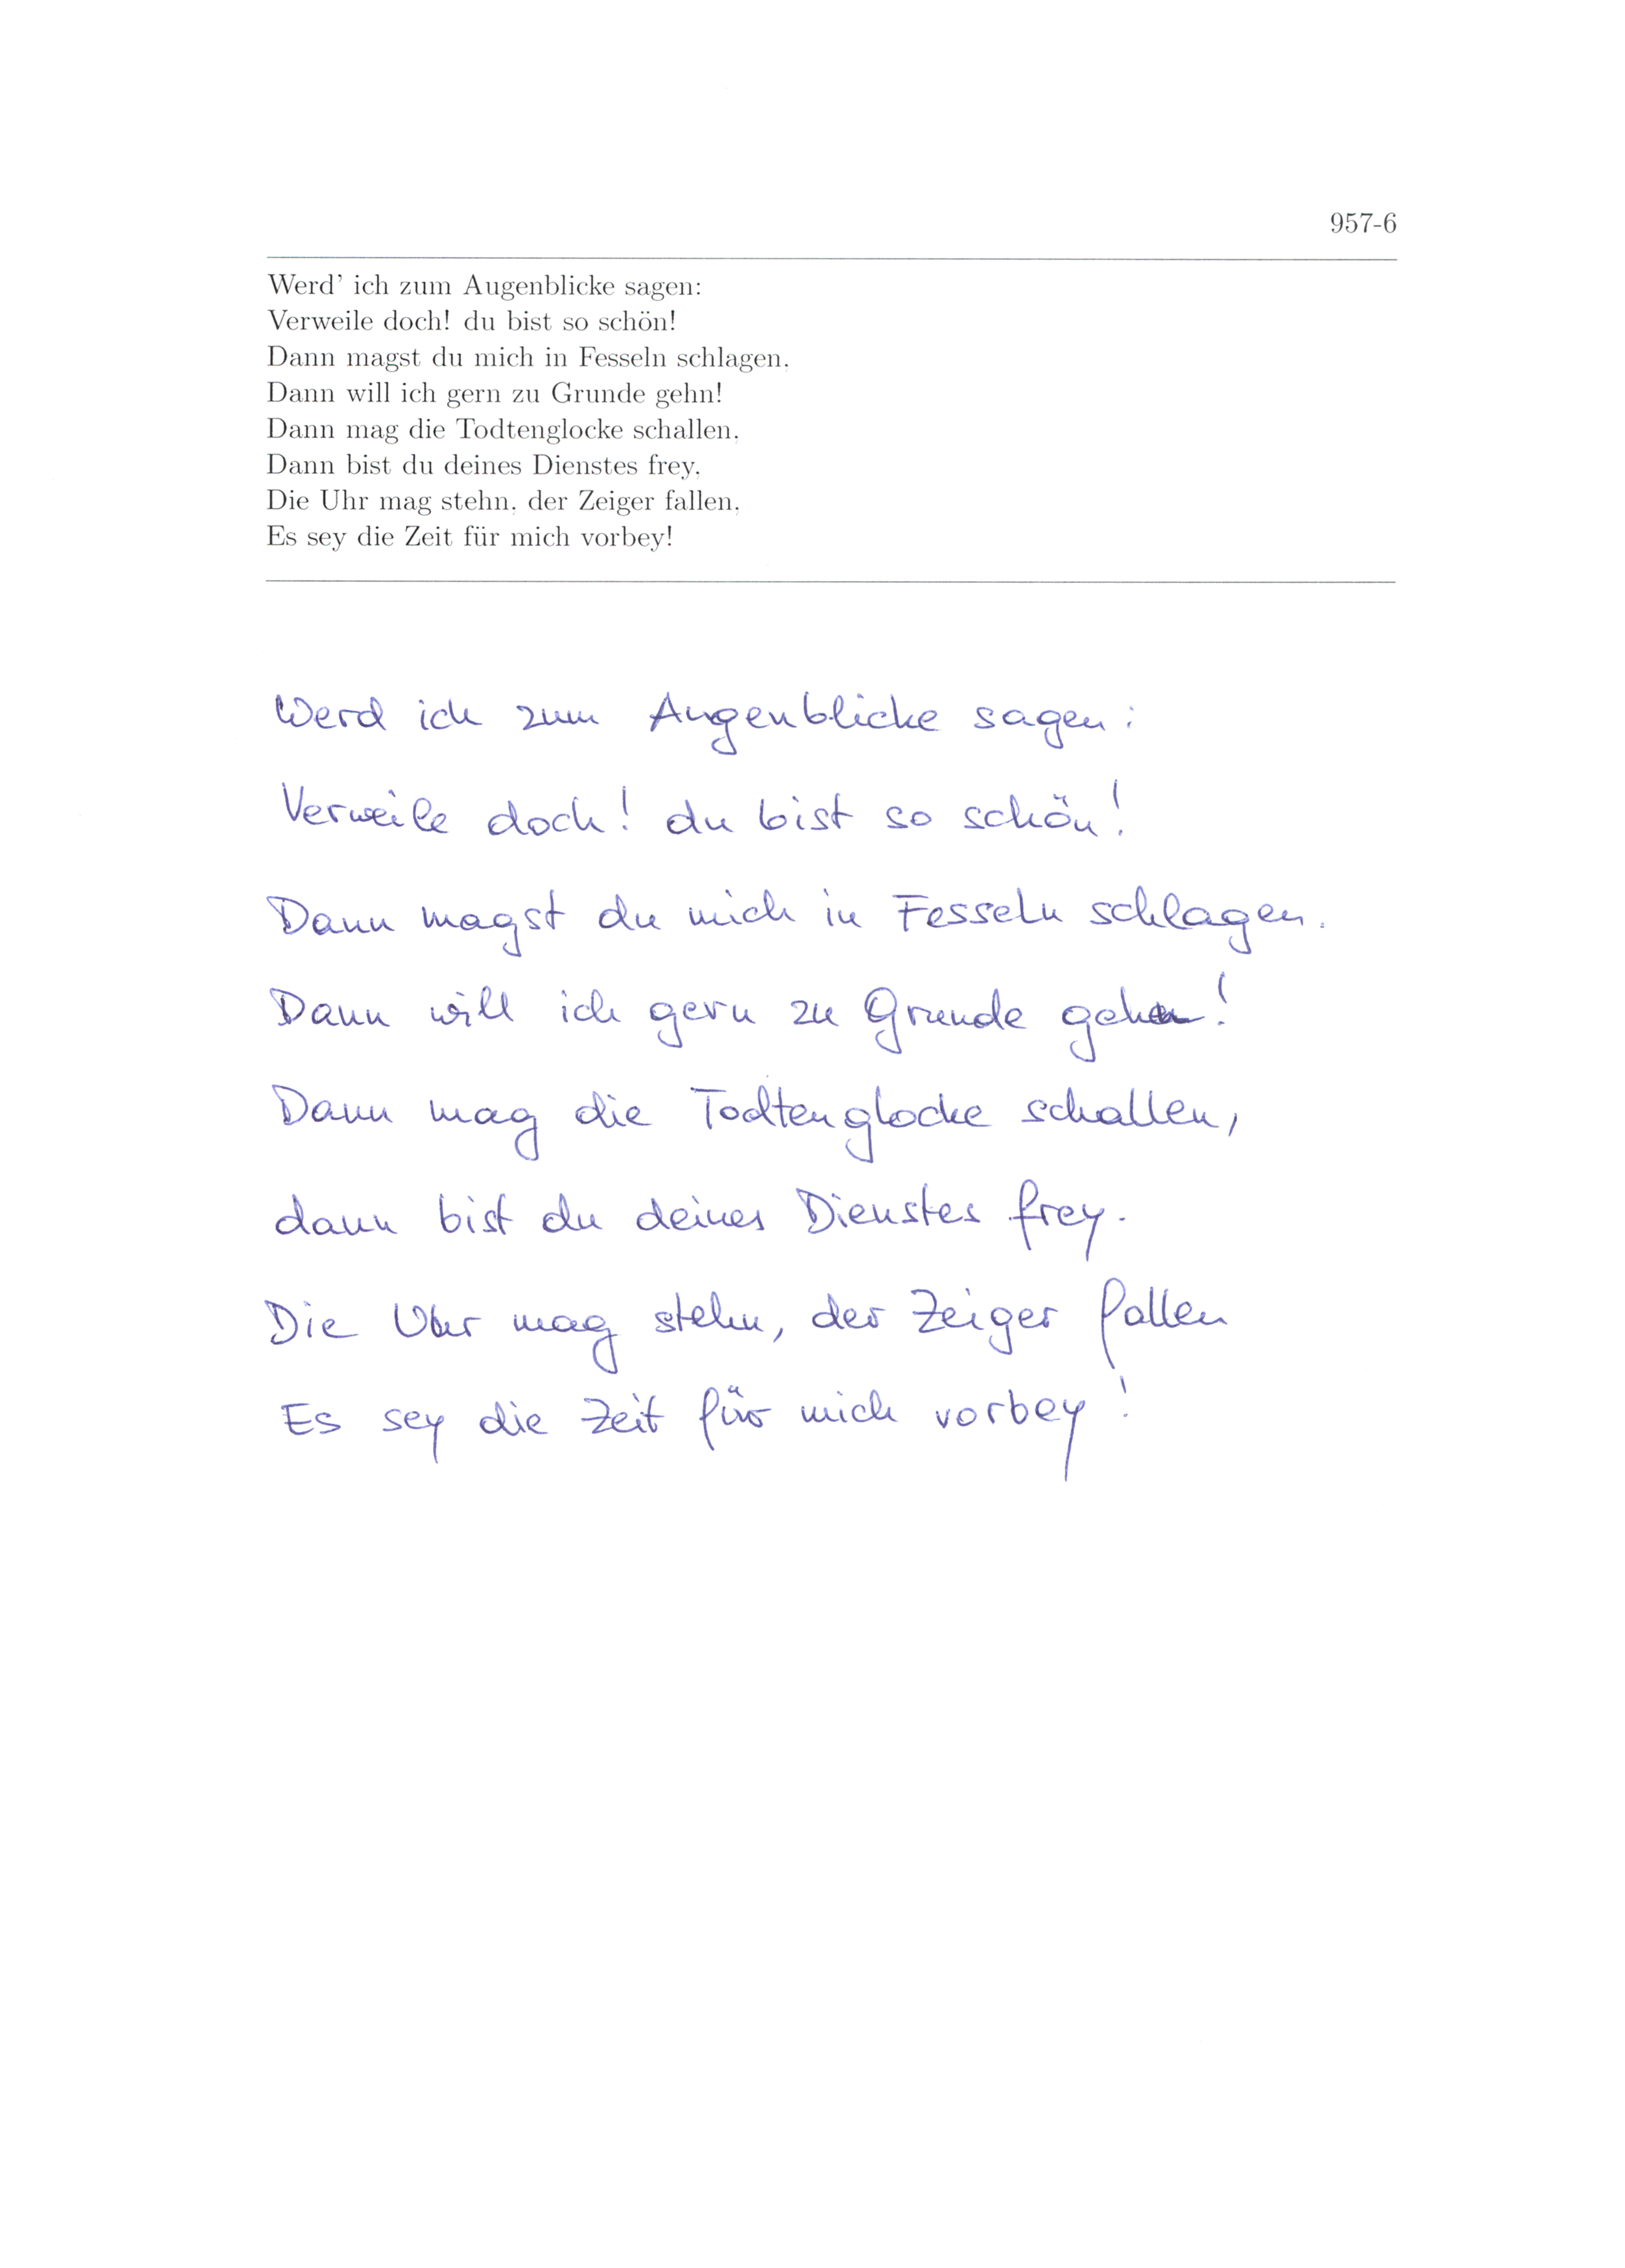 957-6
Werd' ich zum Augenblicke sagen:
Verweile doch! du bist so schön!
Dann magst du mich in Fesseln schlagen,
Dann will ich gern zu Grunde gehn!
Dann mag die Todtenglocke schallen,
Dann bist du deines Dienstes frey,
Die Uhr mag stehn, der Zeiger fallen,
Es sey die Zeit für mich vorbey!
Werd ich zum Augenblicke sagen:
Verweile doch! du bist so schön!
Dann magst du mich in Fesseln schlagen.
Dann will ich gern zu Grunde gehn!
Dann mag die Todtenglocke schallen,
dann bist du deines Dienstes frey.
Die Uhr mag stehn, der Zeiger fallen
Es sey die Zeit für mich vorbey!